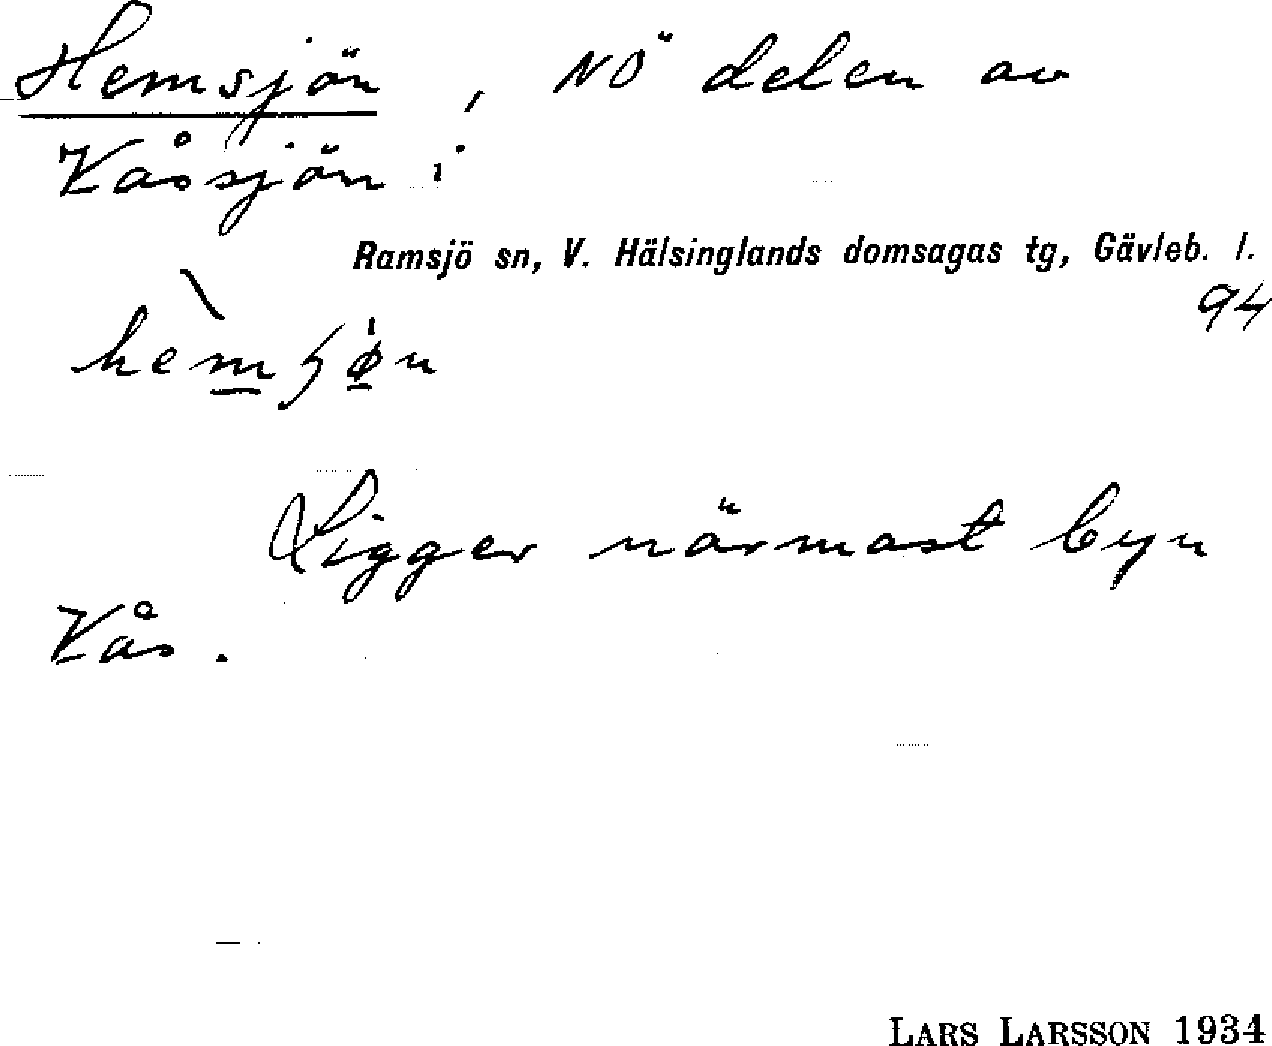 Hemsjön, NÖ delen av
Kåssjön i
Ramsjö sn, V. Hälsinglands domsagas tg, Gävleb. l.
94
Ligger närmast byn
Kås.
LARS LARSSON 1934